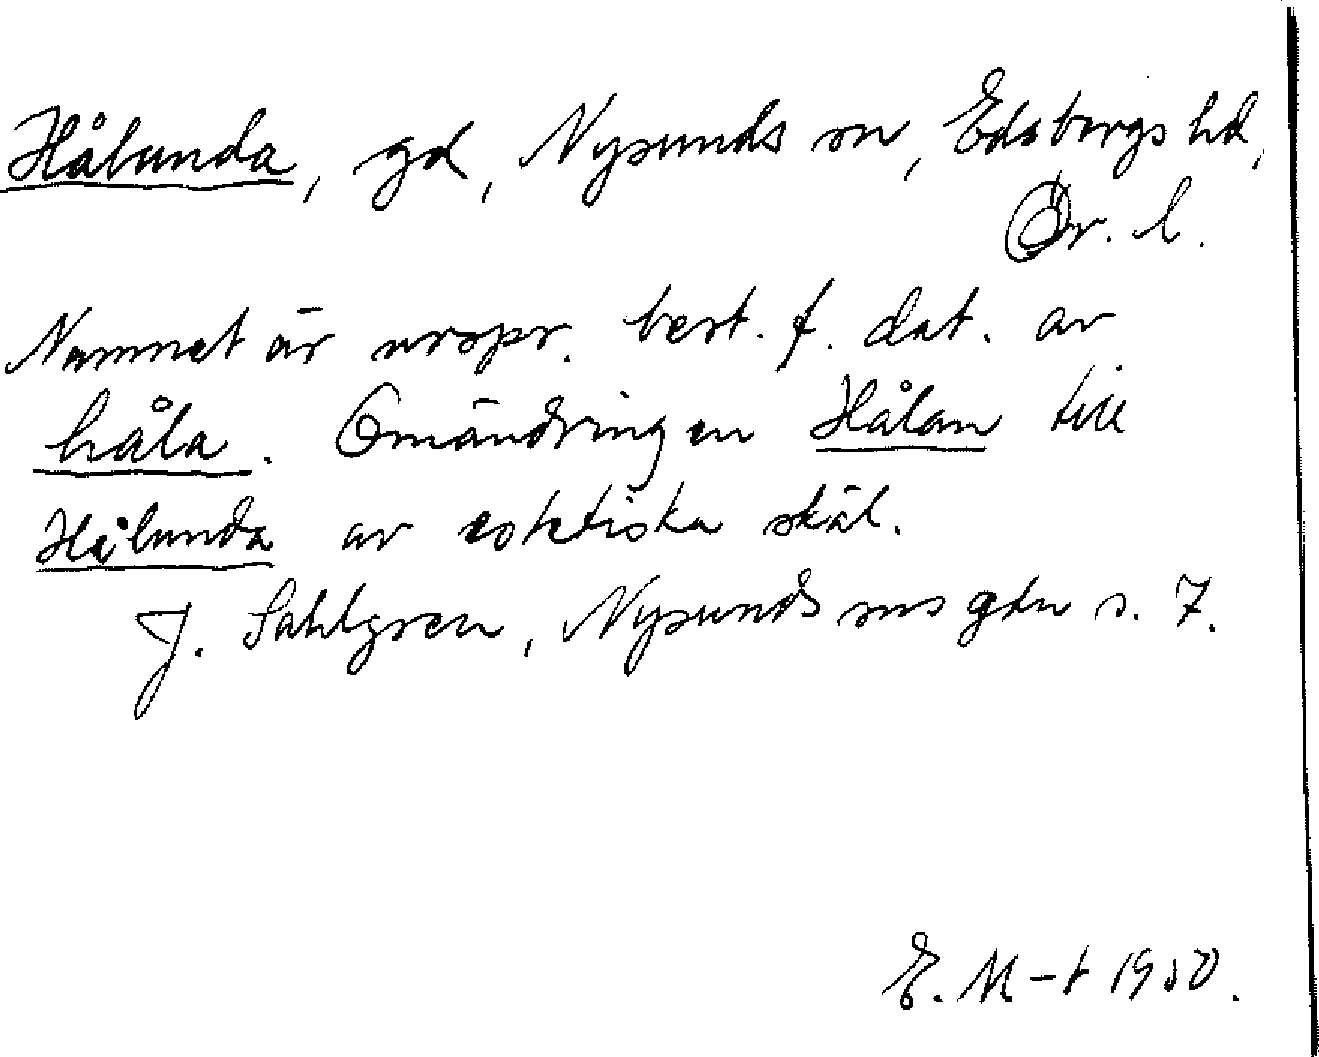 Hålunda, gd, Nysunds sn, Edsbergs hd,
Ör. l.
Namnet är urspr. best. f. dat. av
håla. Omändringen Hålan till
Hålunda av estetiska skäl.
J. Sahlgren, Nysunds sns gdn s. 7.
E. M-t 1950.